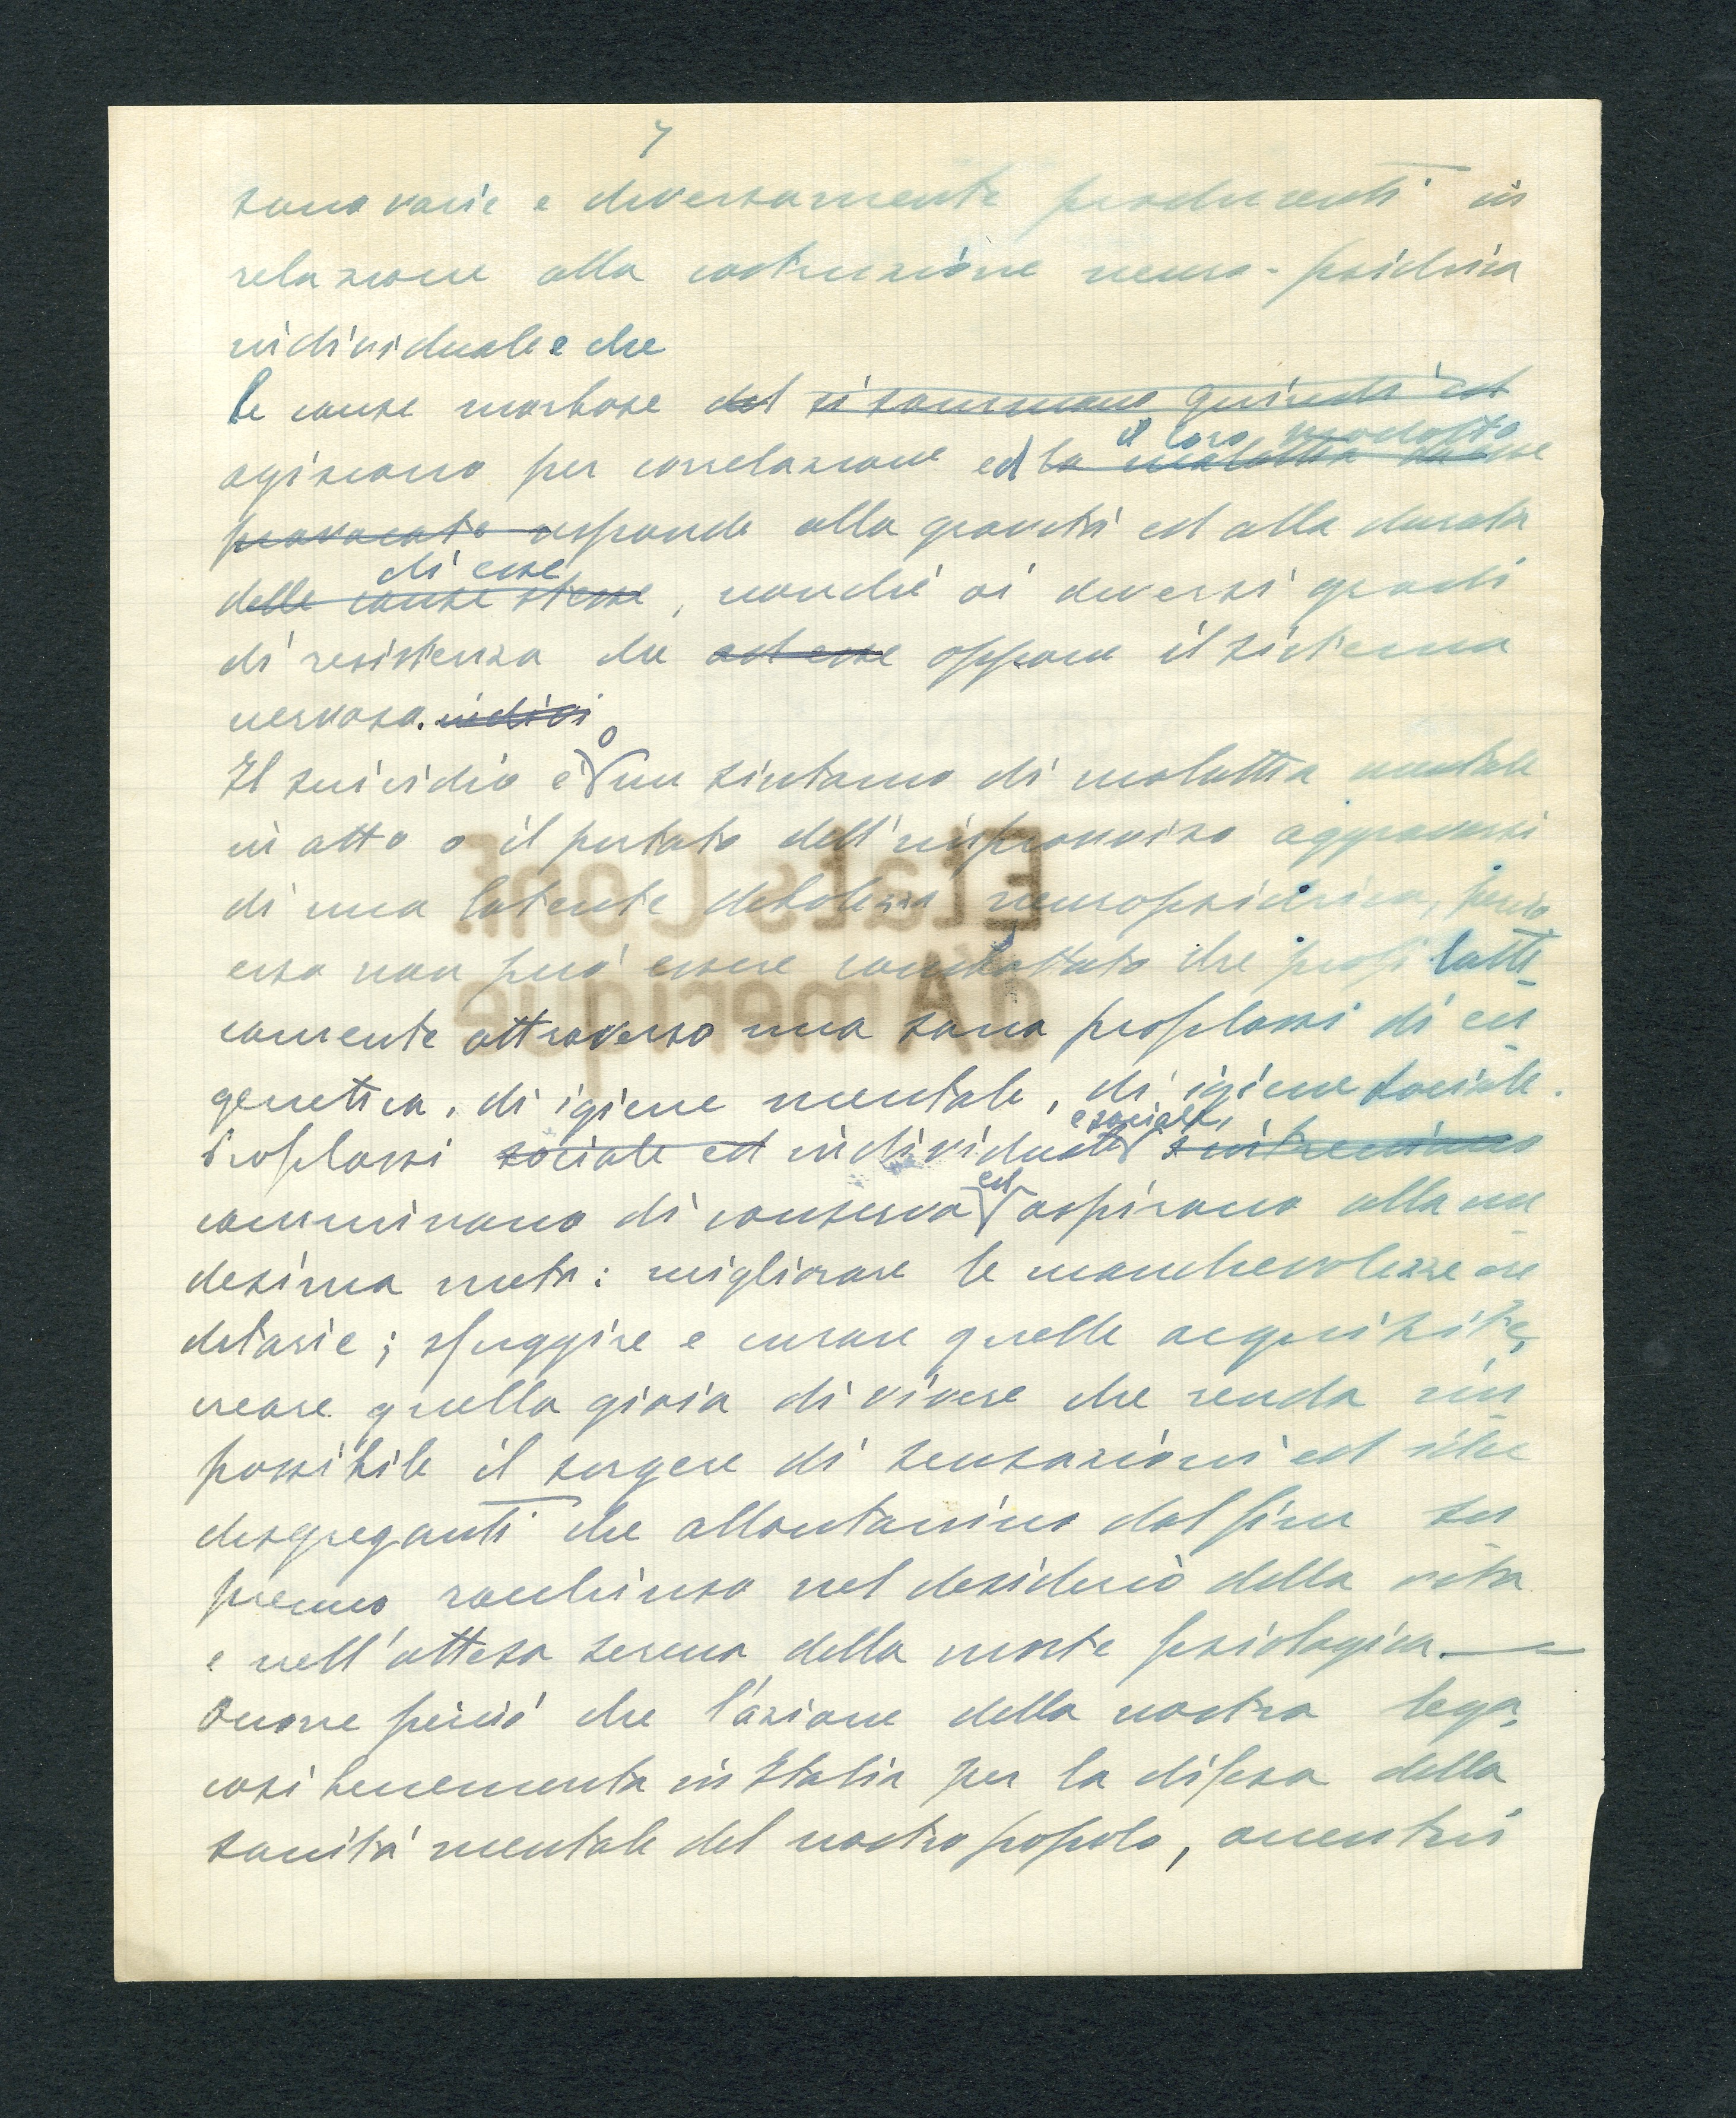 7
sono varie e diversamente producenti in
relazione alla costruzione neuro-psichica
individuale e che
le cause morbose del si sommano quindi ed
il loro prodotto
agiscono per correlazione ed la malattia da esse
provocata risponde alla gravità ed alla durata
di esse
delle cause stesse, nonchè ai diversi gradi
di resistenza che ad esse oppone il sistema
nervoso. indivi
Il suicidio è o un sintomo di malattia mentale
in atto o il portato dell'improvviso aggravarsi
di una latente debolezza neuropsichica, perciò
esso non può essere combattuto che profilatti-
camente attraverso una sana profilassi di eu-
genetica, di igiene mentale, di igiene sociale.
e sociale,
Profilassi sociale ed individuale s'intrecciano
ed
camminano di conserva aspirano alla me-
desima meta: migliorare le manchevolezze ere-
ditarie; sfuggire e curare quelle acquisite,
creare quella gioia di vivere che renda im-
possibile il sorgere di sensazioni ed idee
disgreganti che allontanino dal fine su-
premo racchiuso nel desiderio della vita
e nell'attesa serena della morte fisiologica.—
Onore perciò che l'azione della nostra lega,
così benemerita in Italia per la difesa della
sanità mentale del nostro popolo,
Etats Conf.
d'Amerique